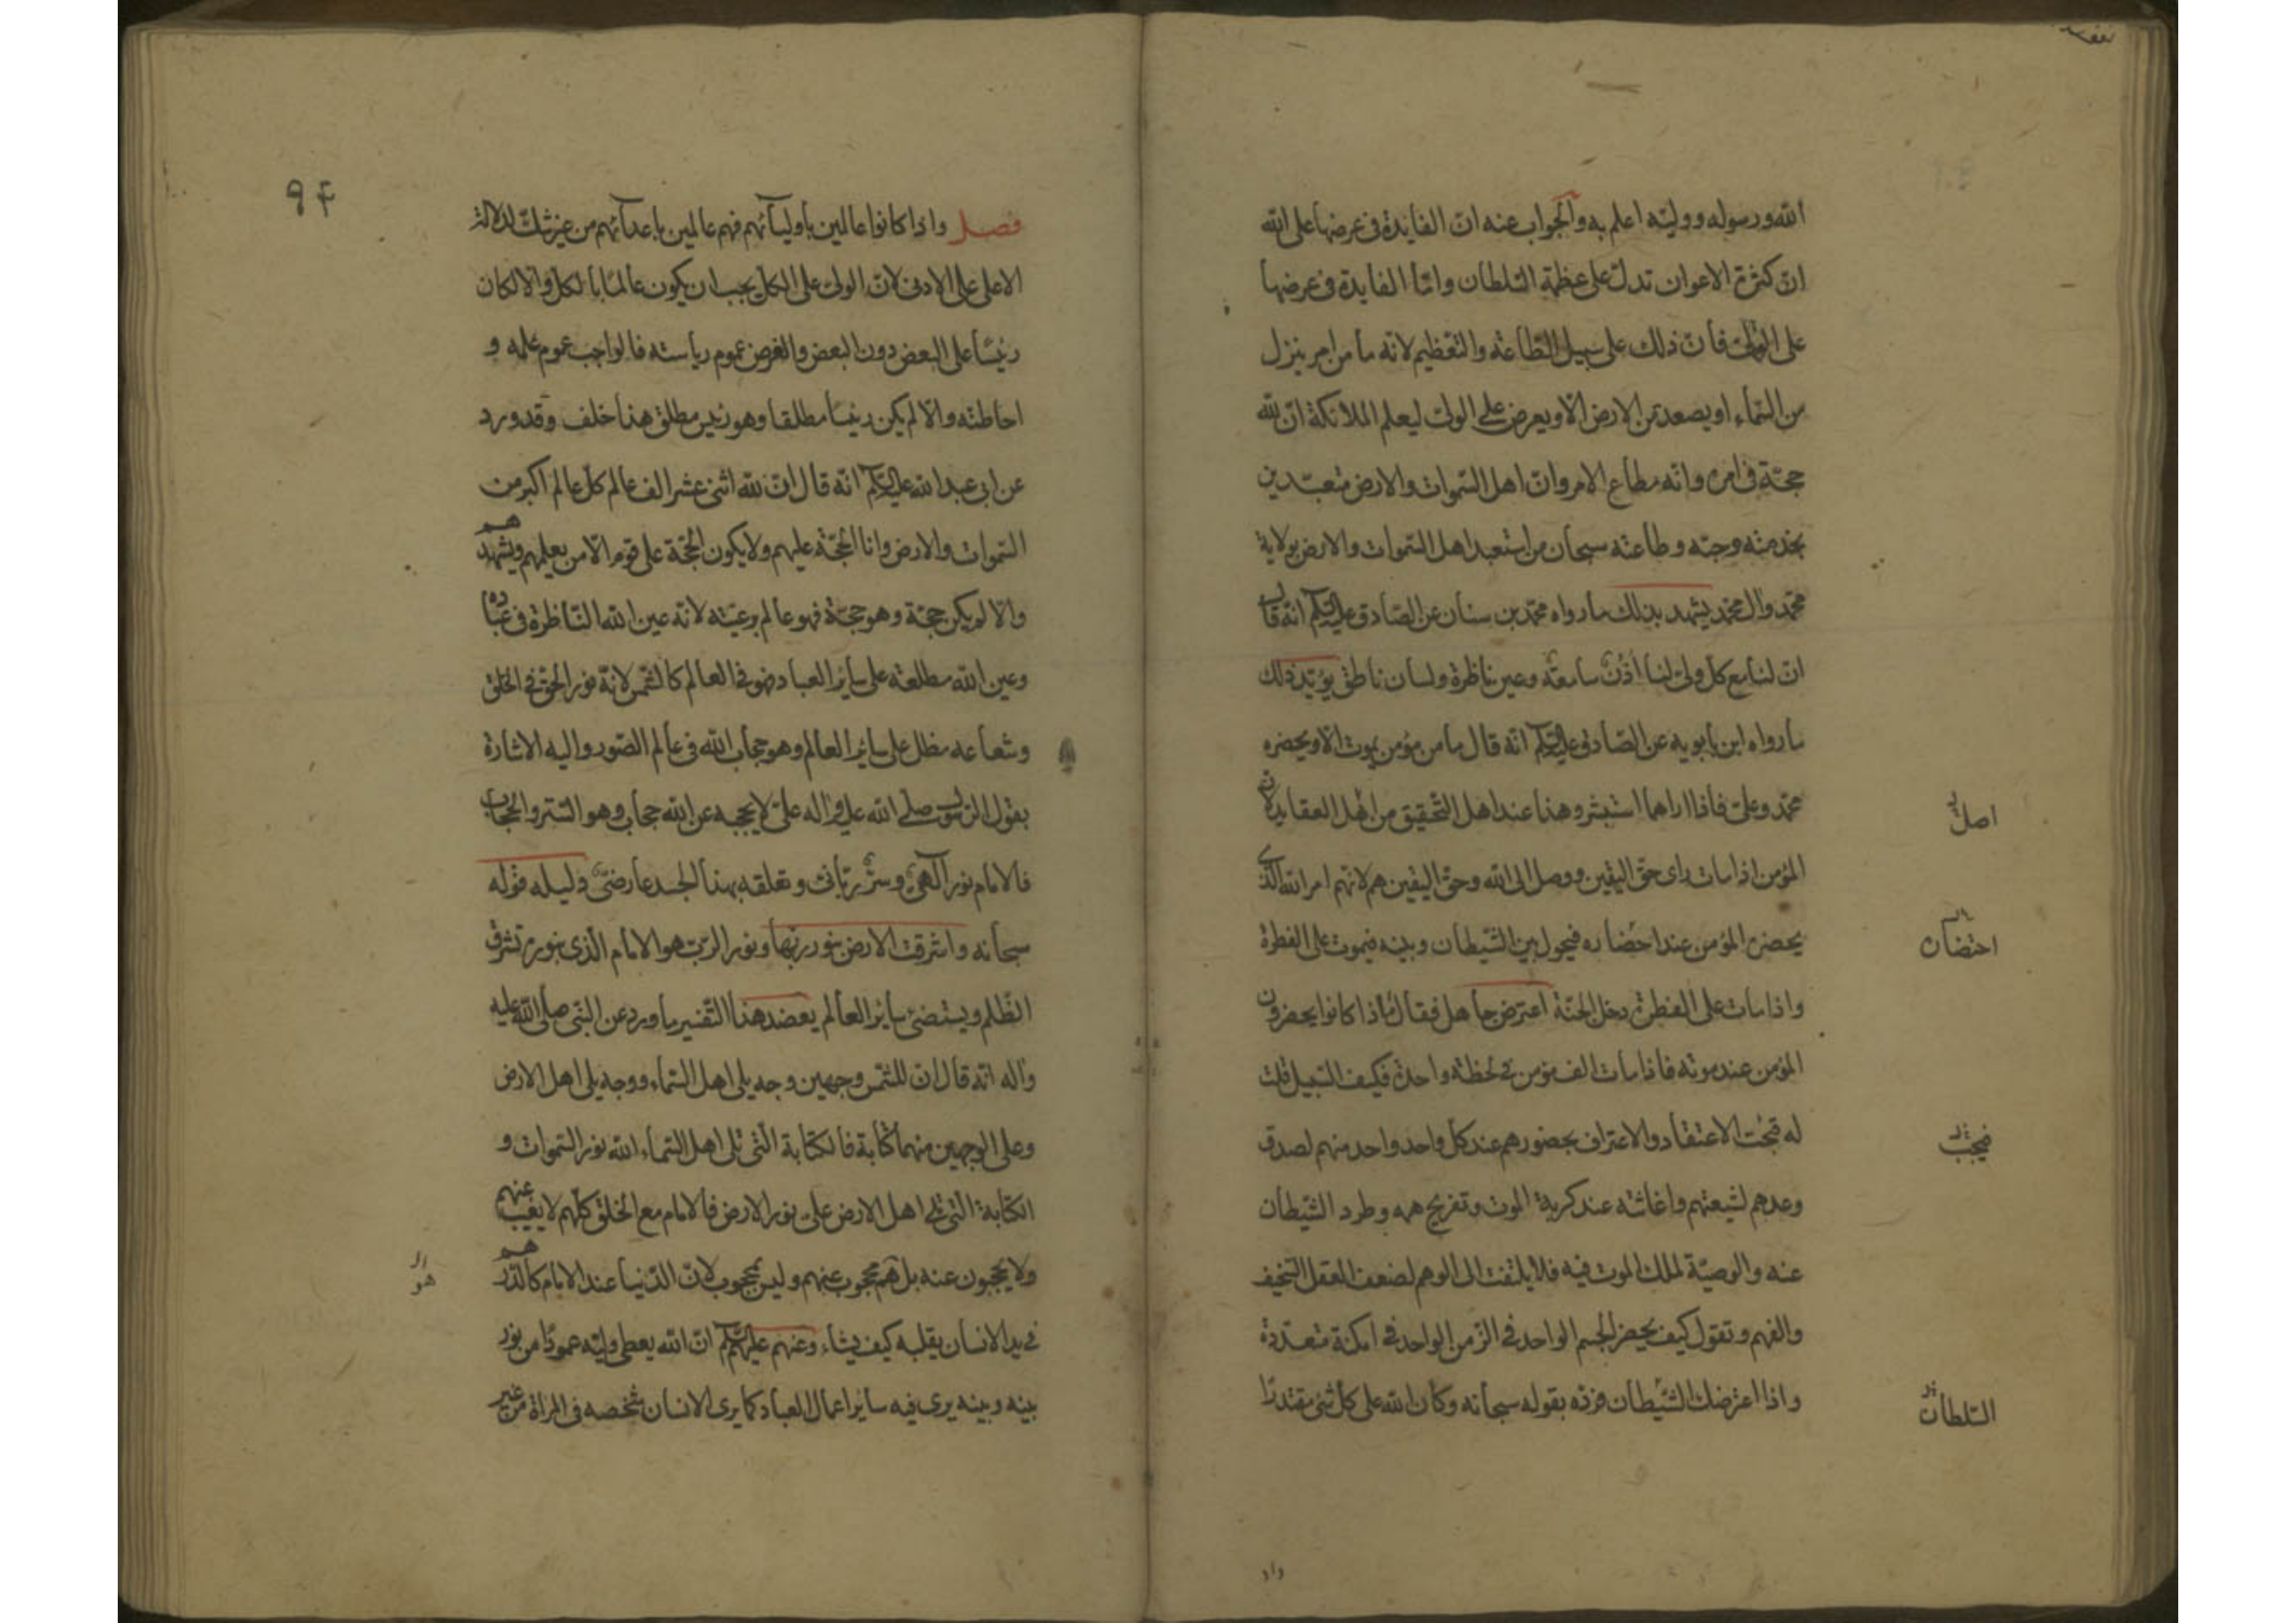 الله ورسوله ووليّه اعلم به والجواب عنه انّ الفايدة فى عرضها على الله
انّ كثرة الاعوان تدلّ على عظمة السّلطان وامّا الفايدة فى عرضها
على الولىّ فانّ ذلك على سبيل الطّاعة والتعظيم لانّه ما من امر ينزل
من السّماء او يصعد من الارض الّا ويعرض على الولىّ ليعلم الملائكة انّ لله
حجّة فى امره وانّه مطاع الامر وانّ اهل السّموات والارض متعبّدين
بخدمته وحبّه وطاعته سبحان من استعبد اهل السّموات والارض بولاية
محمّد وال محمّد يشهد بذلك ما رواه محمّد بن سنان عن الصّادق عليه السّلم انّه قال
انّ لنا مع كلّ ولىّ لنا اُذُنٌ سامعةٌ وعين ناظرة ولسان ناطق يؤيّد ذلك
ما رواه ابن بابويه عن الصّادق عليه السّلم انّه قال ما من مؤمن يموت الّا ويحضره
محمّد وعلىّ فاذا اراهما استبشر وهذا عند اهل التّحقيق من اهل العقايد لانّ
اصل
المؤمن اذا مات راى حقّ اليقين ووصل الى الله وحقّ اليقين هم لانّهم امر الله الّذى
يحضره المؤمن عند احضاره فيحول بين الشّيطان وبينه فيموت على الفطرة
احتضاره
واذا مات على الفطرة دخل الجنّة اعترض جاهل فقال لماذا كانوا يحضرون
المؤمن عند موته فاذا مات الف مؤمن فى لحظة واحدة فكيف السّبيل قلت
له تجب الاعتقاد والاعتراف بحضورهم عند كلّ واحد واحد منهم لصدق
فيجب
وعدهم لشيعتهم واغاثته عند كربة الموت وتفريج همه وطرد الشّيطان
عنه والوصيّة لملك الموت فيه فلا يلتفت الى الوهم لضعف العقل السّخيف
والفهم وتقول كيف يحضر الجسم الواحد فى الزّمن الواحد فى امكنة متعدّدة
واذا اعترضك الشّيطان فردّه بقوله سبحانه وكان الله على كلّ شىء مقتدرًا
السّلطان
واذ
٩٤
فصل واذا كانوا عالمين باوليآئهم فهم عالمين باعدآئهم من غير شكّ لدلالة
الاعلى على الادنى لانّ الولىّ على الكلّ يجب ان يكون عالمًا بالكلّ والّا لكان
رئيسًا على البعض دون البعض والغرض عموم رياسته فالواجب عموم علمه و
احاطته والّا لم يكن رئيسًا مطلقا وهو رئيس مطلق هذا خلف وقد ورد
عن ابى عبد الله عليه السّلم انّه قال انّ لله اثنى عشر الف عالم كلّ عالم اكبر من
السّموات والارض وانا الحجّة عليهم ولا يكون الحجّة على قوم الّا من يعلمهم ويشهدهم
والّا لم يكن حجّة وهو حجّة فهو عالم برعيّته لانّه عين الله النّاظرة فى عباده
وعين الله مطلعة على سائر العباد فهو فى العالم كالشّمس لانّه نور الحقّ فى الخلق
وشعاعه مظل على سائر العالم وهو حجاب الله فى عالم الصّور واليه الاشارة
بقول الرّسول صلى الله عليه واله علىّ لا يحجبه عن الله حجاب وهو السّتر والحجاب
فالامام نور الٓهىّ وسرّ ربّانىّ وتعلقه بهذا الجسد عارضىّ دليله قوله
سبحانه واشرقت الارض بنور ربّها ونور الربّ هو الامام الّذى بنوره تشرق
الظّلم ويستضىء سائر العالم يعضد هذا التّفسير ما ورد عن النّبى صلى الله عليه
واله انّه قال انّ للشّمس وجهين وجه يلى اهل السّماء ووجه يلى اهل الارض
وعلى الوجهين منهما كتابة فالكتابة الّتى تلى اهل السّماء الله نور السّموات و
الكتابة الّتى تلى اهل الارض علىّ نور الارض فالامام مع الخلق كلّهم لا يغيب عنهم
ولا يحجبون عنه بل هم محجوب عنهم وليس بمحجوب لانّ الدّنيا عند الامام كالدّرهم
هو
فى يد الانسان يقلبه كيف يشاء وعنهم عليهم السّلم انّ الله يعطى وليّه عمودًا من نور
بينه وبينه يرى فيه سائر اعمال العباد كما يرى الانسان شخصه فى المراة من غير